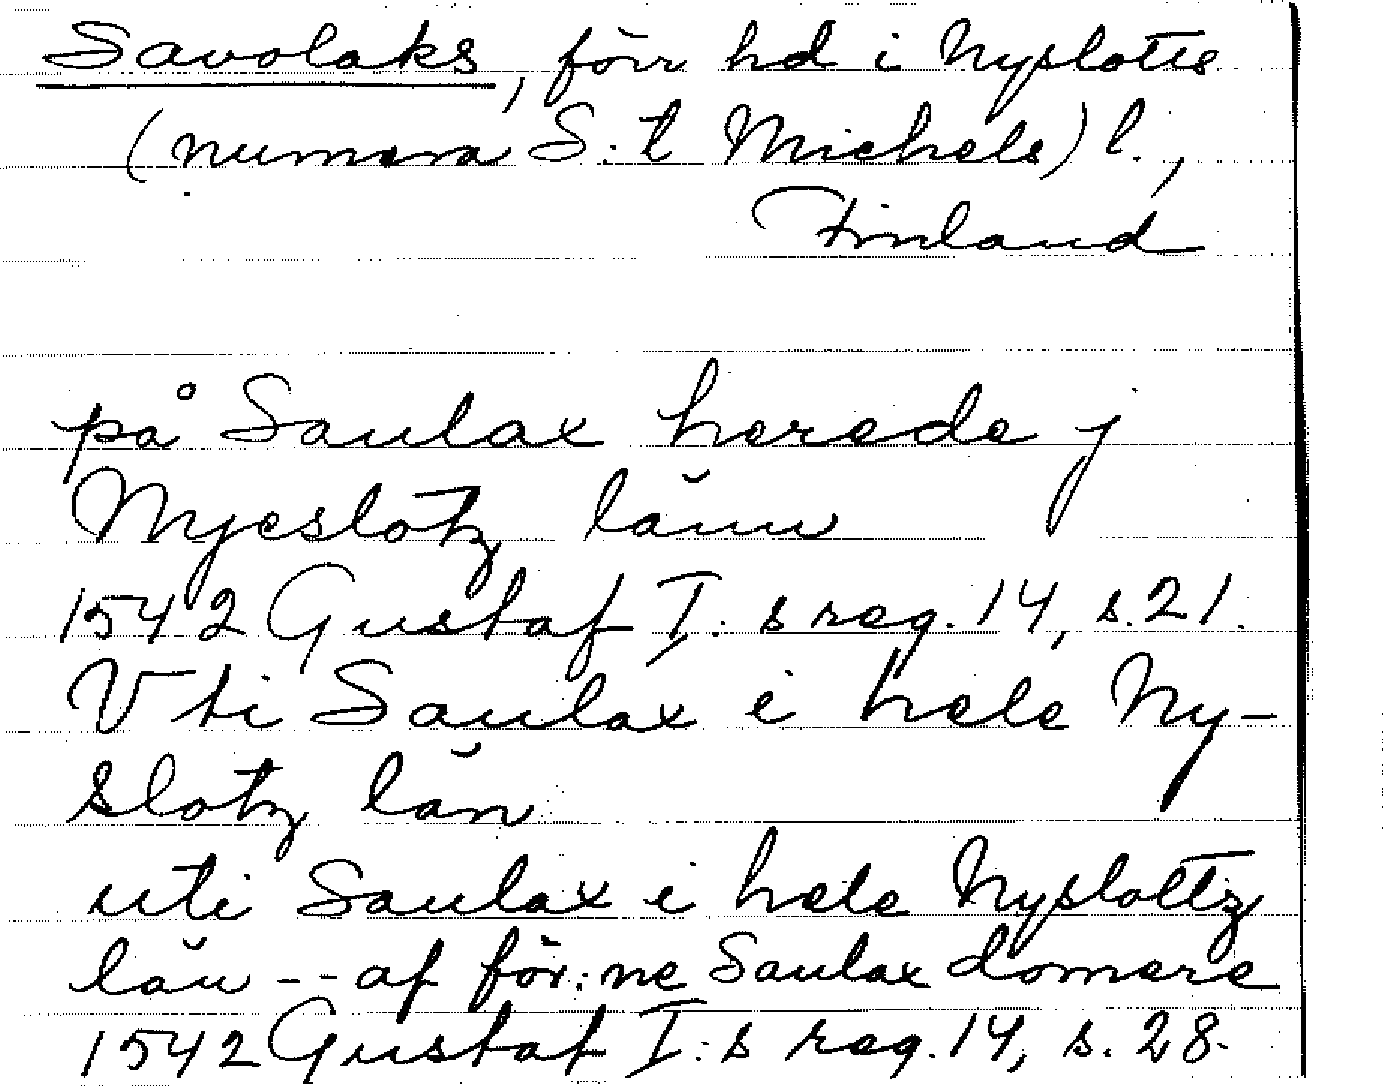 Savolaks, förr hd i Nyslotts
(numera S:t Michels) l.,
Finland
på Saulax herede j
Nyeslotz länn
1542 Gustaf I:s reg. 14, s. 21.
Vti Saulax i hele Ny-
slotz län
uti Saulax i hele Nyslottz
län -- af för:ne Saulax domere
1542 Gustaf I:s reg. 14, s. 28.